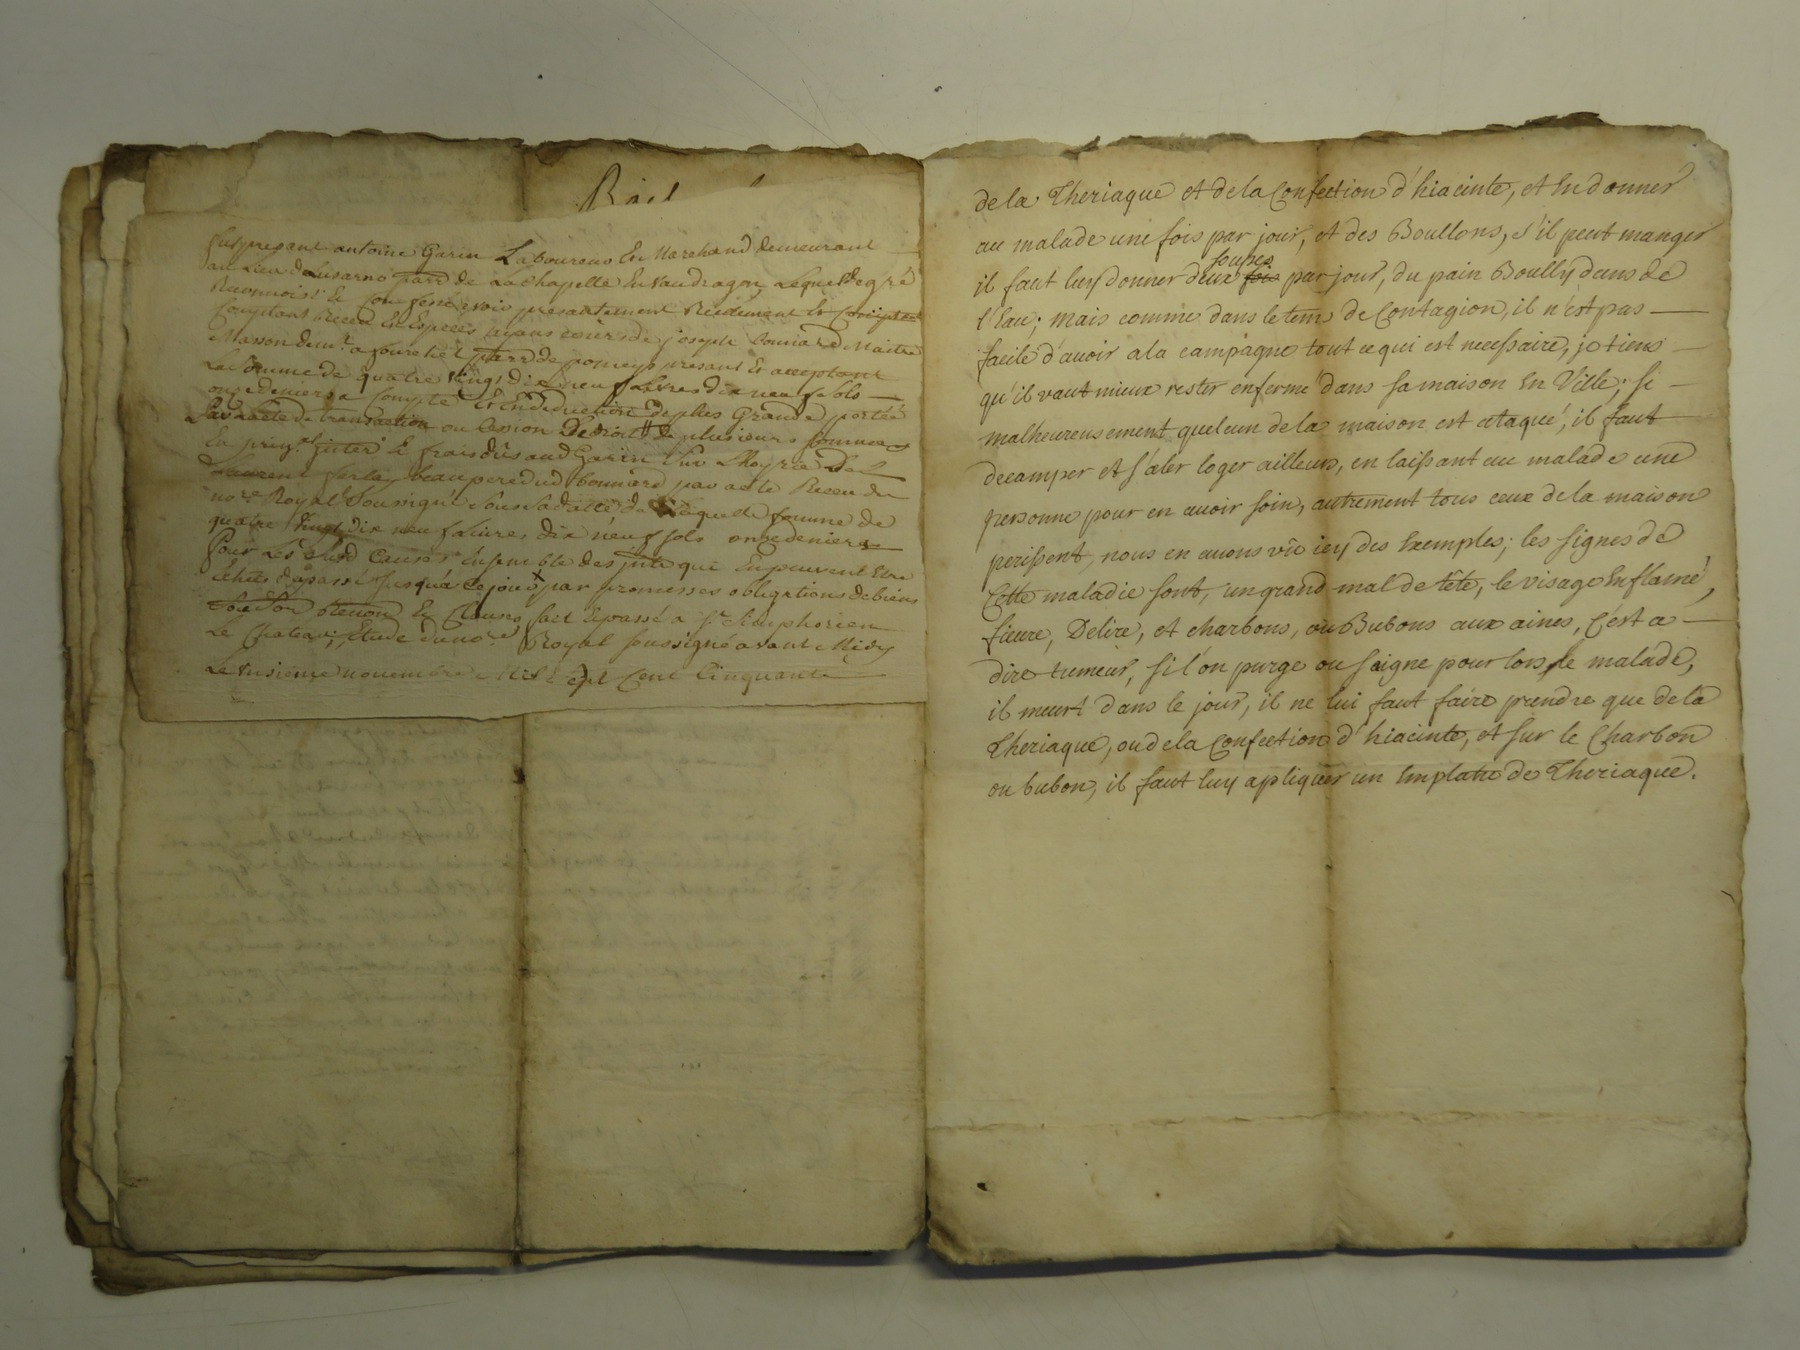 Bail
fut present antoine Garin Laboureur Et Marchand demeurant
au Lieu de Lusarno parr de La Chapelle En Vaudragon, Lequel de gré
Reconnoist & Confesse avoir presantement Reellement Et
Comptant Receu En Especes ayans cours de joseph bonnard Maitre
Masson demt a parr de pomeys presant Et acceptant
La Somme de quatre vingt dix neuf Livres dix neuf sols
onze deniers a Compte Et En deduction de plus Grande portée
par acte de transaction ou cession De droit # de plusieurs sommes
En prinal frais dûs aud Garin
Laurent beaupere dud bonnard par acte Receu du
nore Royal Soussigné sous sa datte de Laquelle somme de
quatre vingt dix neuf Livres dix neuf sols onze deniers
Pour Les Causes Ensemble des que En peuvent Etre
passé jusqu'a Ce jour + par promesses obligations de biens
Et Clauses fait Et passé a St Simphorien
Le Chateau, Etude du nore Royal soussigné avant Midy
Le novembre Mil Sept Cent Cinquante
de la Theriaque et de la Confection d'hiacinte, et En donner
au malade une fois par jour, et des Boullons, s'il peut manger
soupes
il faut luy donner deux fois par jour, du pain Boully dans de
l'Eau; mais comme dans le tems de Contagion, il n'est pas
facile d'avoir a la campagne tout ce qui est necessaire, je tiens
qu'il vaut mieux rester enfermé dans sa maison En Ville; si
malheureusement quelcun de la maison est ataqué, il faut
decamper et s'aler loger ailleurs, en laissant au malade une
personne pour en avoir soin, autrement tous ceux de la maison
perissent, nous en avons vû icy des Exemples; les signes de
Cette maladie sont, un grand mal de tête, le visage Enflamé,
fievre, Delire, et charbons, ou Bubons aux aines, C'est a
dire tumeur, si l'on purge ou saigne pour lors le malade,
il meurt dans le jour, il ne lui faut faire prendre que de la
Theriaque, ou de la Confection d'hiacinte, et sur le Charbon
ou bubon, il faut luy apliquer un Emplatre de Theriaque.